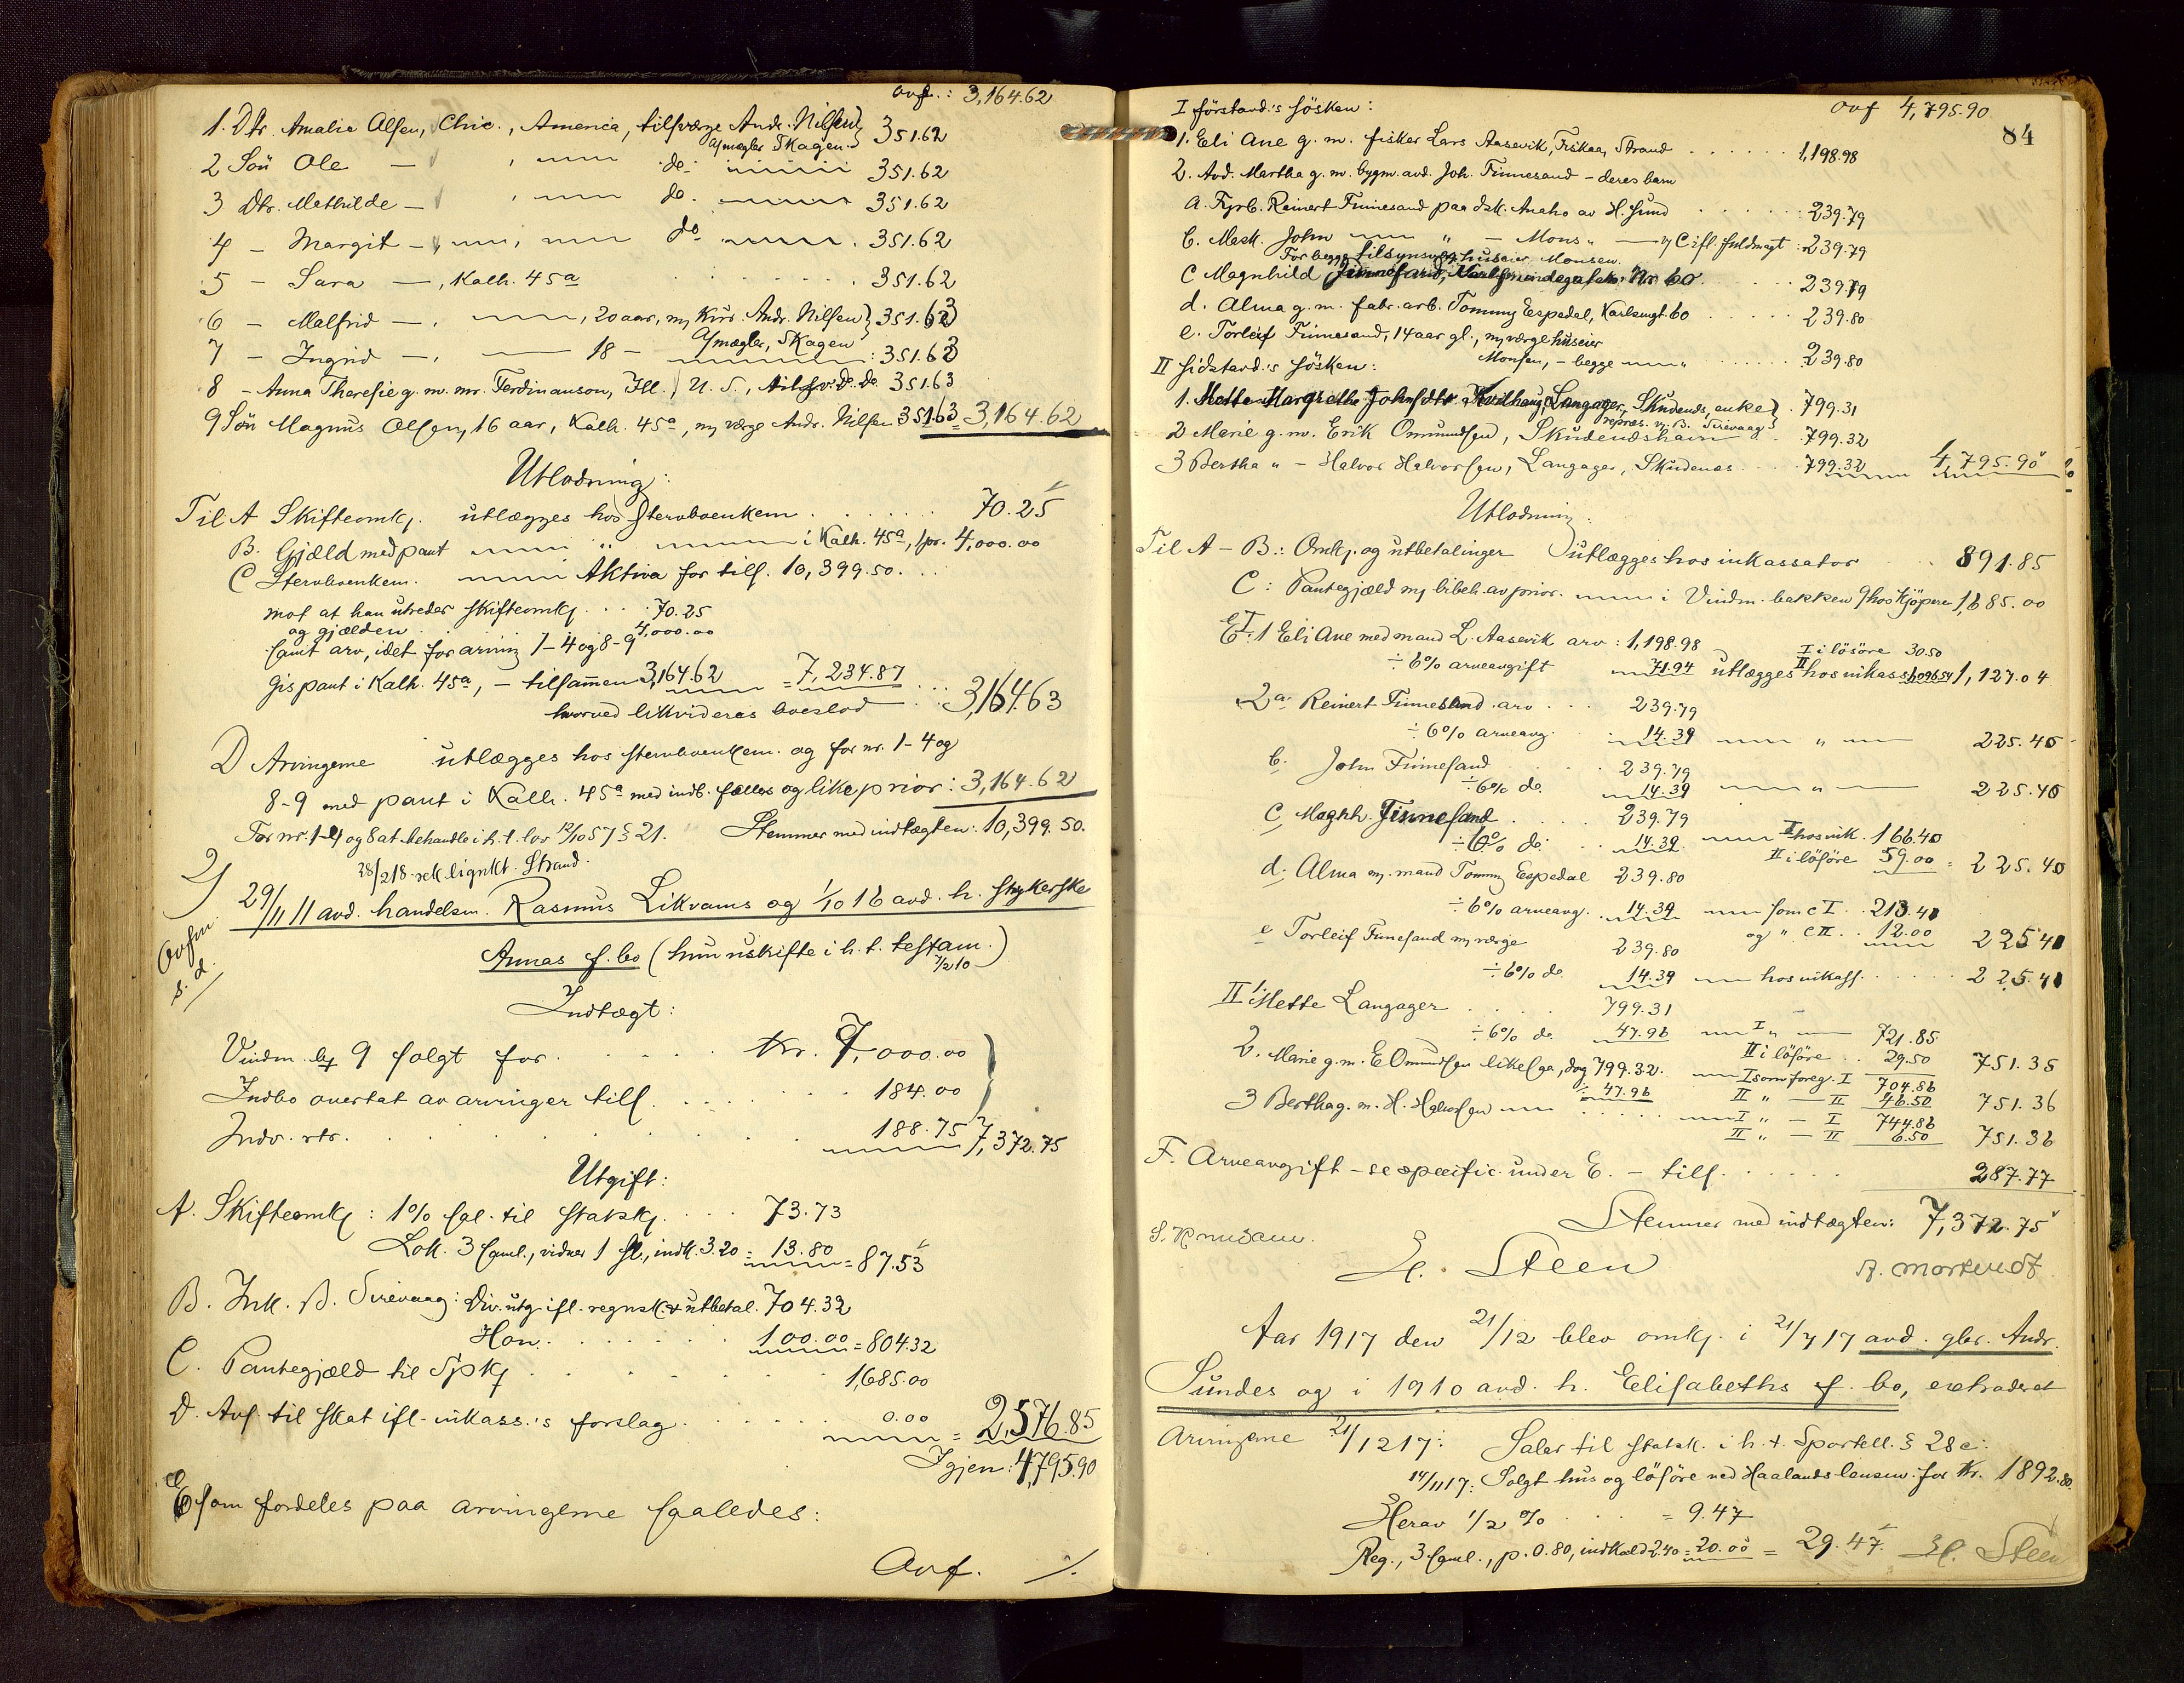 Ovf. : 3,164.62
1. Dtr. Amalie Olsen, Chic., America, tilsværge Andr. Nilsen } 351.62
Asmægler Skagen.
2 Søn Ole — , — do. 351.62
3 Dtr. Mathilde — , — do. 351.62
4 - Margit — , — do . 351.62
5 - Sara — , Kalh. 45a . . . . 351.62
6 - Malfrid — , — , 20 aar, m/ kur. Andr. Nilsen } 351.63
Asmægler, Skagen
7 - Ingrid — , — 18 — : 351.63
8 - Anna Theresie g. m. mr. Ferdinanson, Ill., U. S., tilsv. Do. Do. 351.63
9 Søn Magnus Olsen, 16 aar, Kalh. 45a, m/ værge Andr. Nilsen 351.63 = 3,164.62
Utlodning:
Til A Skifteomk. utlægges hos Stervboenkem. . . . . 70.25
B. Gjæld med pant — " — i Kalh. 45a, 1 pr. 4,000.00
C Stervboenkem. — Aktiva for tils. 10,399.50. . .
mot at han utreder skifteomk. . . . 70.25
og gjælden . . 4,000.00
samt arv, idet for arving 1-4 og 8-9
gis pant i Kalh. 45a, - tilsammen 3,164.62 = 7,234.87
hvorved likvideres boeslod . . . 3,164.63
D Arvingerne utlægges hos stervboenkem. og for nr. 1-4 og
8-9 med pant i Kalh. 45a med indb. fælles og like prior : 3,164.62
For nr. 1-4 og 8 at behandle i h. t. lov 12/10 57 § 21. Stemmer med indtægten: 10,399.50.
28/2 18 rek. lignkt. Strand.
2) 29/11 11 avd. handelsm. Rasmus Likvams og 1/10 16 avd. h. strykerske
Ovfm. s. d.
Annas f. bo (hun uskifte i h. t. testam. 7/2 10)
Indtægt:
Vindm. bg 9 solgt for . . . . . Kr. 7,000.00
Indbo overtat av arvinger tils. . . . . . . 184.00
Indv. rtr. . . . . . . . . 188.75 7,372.75
Utgift:
A. Skifteomk : 1% sal. til statsk. . . . 73.73
Lok. 3 saml., vidner 1 Sl., indk. 3.20 = 13.80 = 87.53
B. Ink. B. Sirevaag : Div. utg. ifl. regnsk. & utbetal. 704.32
Hon. . . . . . 100.00 = 804.32
C. Pantegjæld til Spk . . . . . . . 1,685.00
D. Avs. til skat ifl. inkass.'s forslag . . . . 0.00 = 2,576.85
Igjen: 4,795.90
E som fordeles paa arvingerne saaledes:
Ovf. ./.
Ovf 4,795.90
84
I förstavd.'s søsken :
1. Eli Ane g. m. fisker Lars Aasevik, Fiskaa, Strand . . . . . . 1,198.98
2. Avd. Martha g. m. bygm. avd. Joh. Finnesand - deres barn
a. Fyrb. Reinert Finnesand paa dsk. Anaho av H.sund . . . . . 239.79
b. Mask. John — " — Mons " — ifl. fuldmagt . 239.79
For begge tilsynsverge huseier Monsen.
c Magnhild Finnesand, Nr. 60 . . . 239.79
d. Alma g. m. fabr. arb. Tommy Espedal, Karlsmgt. 60 . . . . . 239.80
e. Torleif Finnesand, 14 aar gl., m/ værge huseier
Monsen, - begge — " . . . . . . 239.80
II Sidstavd.'s søsken :
1. Mette Margrethe Johnsdtr. Kvilhaug, Langager, Skudends, enke } . 799.31
repræs. v. B. Sirevaag
2 Marie g. m. Erik Omundsen, Skudeneshavn . . 799.32
3 Bertha " - Halvor Halvorsen, Langager, Skudenes. . . . 799.32 4,795.90
Utlodning :
Til A - B.: Omk. og utbetalinger utlægges hos inkassator . . . 891.85
C : Pantegjæld m/ bibeh. av prior. — i Vindm. bakken 9 hos kjøperen 1,685.00
E I. 1 Eli Ane med mand L. Aasevik arv : 1,198.98 I i lösöre 30.50
÷ 6% arveavgift 71.94 utlægges II hos inkass. 1,096.54 1,127.04
2 a. Reinert Finnesand arv . . . 239.79
÷ 6% arveavg. 14.39 — " — 225.40
b. John Finnesand . . . . 239.79
÷ 6% do. 14.39 — " — 225.40
c Magnh. Finnesand . . . . 239.79
÷ 6% do. . . 14.39 — I hos ink. 166.40
II i lösöre 59.00 = 225.40
d. Alma m. mand Tommy Espedal 239.80
÷ 6% arveavg. 14.39 — som c I . . 213.41
og " c II . . 12.00 225.41
e Torleif Finnesand m/ værge 239.80
÷ 6% do. 14.39 — hos inkass. . . . . . 225.41
II 1. Mette Langager . . . . 799.31
÷ 6% do. 47.96 — I " — 721.85
II i lösöre . . 29.50 751.35
2. Marie g. m. E. Omundsen likesaa, dog 799.32. — I som foreg. I 704.86
÷ 47.96 II " — II 46.50 751.36
3 Bertha g. m. H. Halvorsen — . . . . . . — I " — I 744.86
II " — II 6.50 751.36
F. Arveavgift - se specific. under E. - tils. . . . . . 287.77
Stemmer med indtægten: 7,372.75
S. Knudsen.
H. Steen
Aar 1917 den 21/12 blev omk. i 21/7 17 avd. gbr. Andr.
Sundes og i 1910 avd. h. Elisabeths f. bo, extraderet
Arvingerne 21/12 17: Salær til statsk. i h. t. Sportell. § 28 c :
14/11 17: Solgt hus og lösöre ved Haalands lensm. for Kr. 1892.80.
Herav 1/2 % . . . = 9.47
Reg., 3 saml., p. 0.80, indkald 2.40 = 20.00 = 29.47. H. Steen